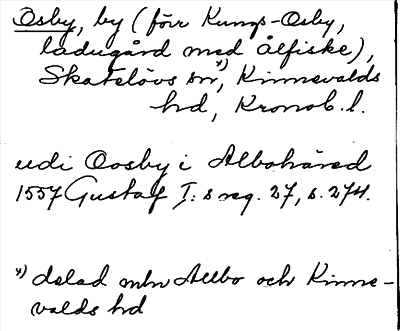 Osby, by (förr Kungs-Osby,
ladugård med ålfiske),
Skatelövs sn x), Kinnevalds
hd, Kronob. l.
udi Oosby i Albohäred
1557 Gustaf I:s reg. 27, s. 274.
x) delad mln Allbo och Kinne-
valds hd